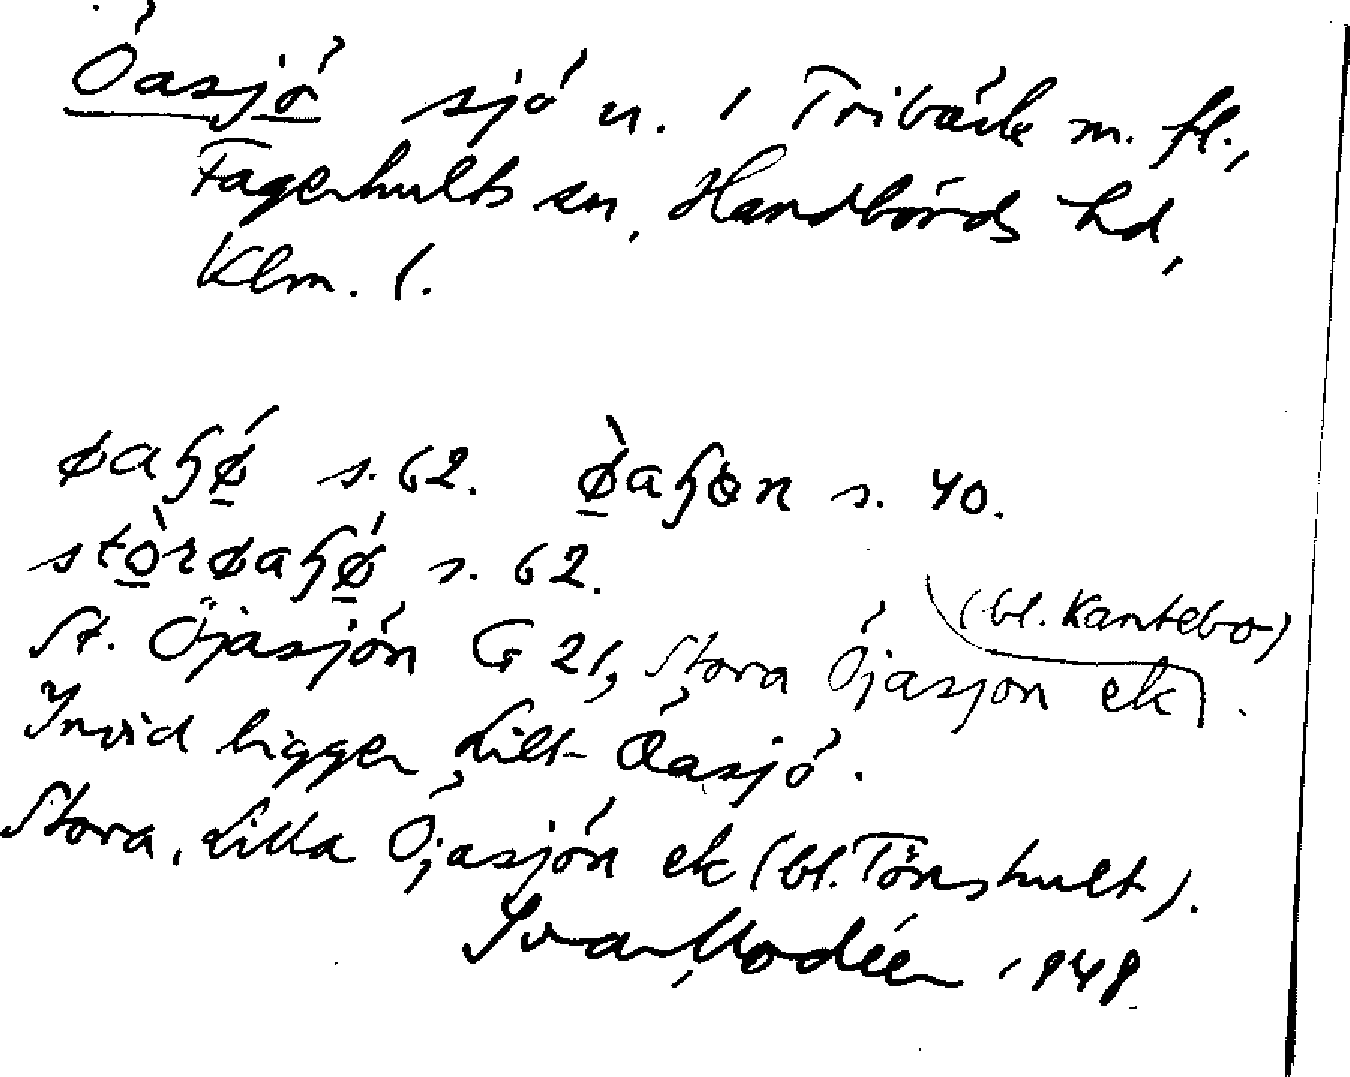 Öasjö sjö n. i Tribäck m. fl.,
Fagerhults sn, Handbörds hd,
Klm. l.
øaɧǿ s. 62. ø̀aɧɵn s. 40.
stòrøaɧǿ s. 62.
St. Öjasjön G 21, Stora Öjasjön ek (bl. Kantebo).
Invid ligger Lilt Öasjö.
Stora, Lilla Öjasjön ek (bl. Tönshult).
Ivar Modéer 1948.